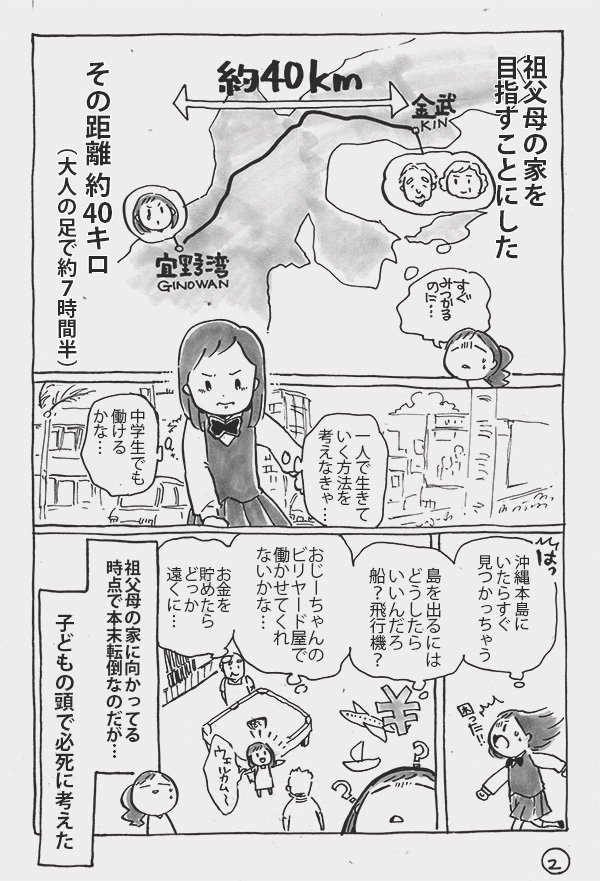 祖父母の家を
目指すことにした
約40km
金武
KIN
宜野湾
GINOWAN
その距離 約40キロ
（大人の足で約7時間半）
すぐ
みつかる
のに…
一人で生きて
いく方法を
考えなきゃ…
中学生でも
働ける
かな…
はっ
沖縄本島に
いたらすぐ
見つかっちゃう
困った!!
島を出るには
どうしたら
いいんだろ
船？飛行機？
¥
おじーちゃんの
ビリヤード屋で
働かせてくれ
ないかな…
お金を
貯めたら
どっか
遠くに…
ウェルカム〜
祖父母の家に向かってる
時点で本末転倒なのだが…
子どもの頭で必死に考えた
2